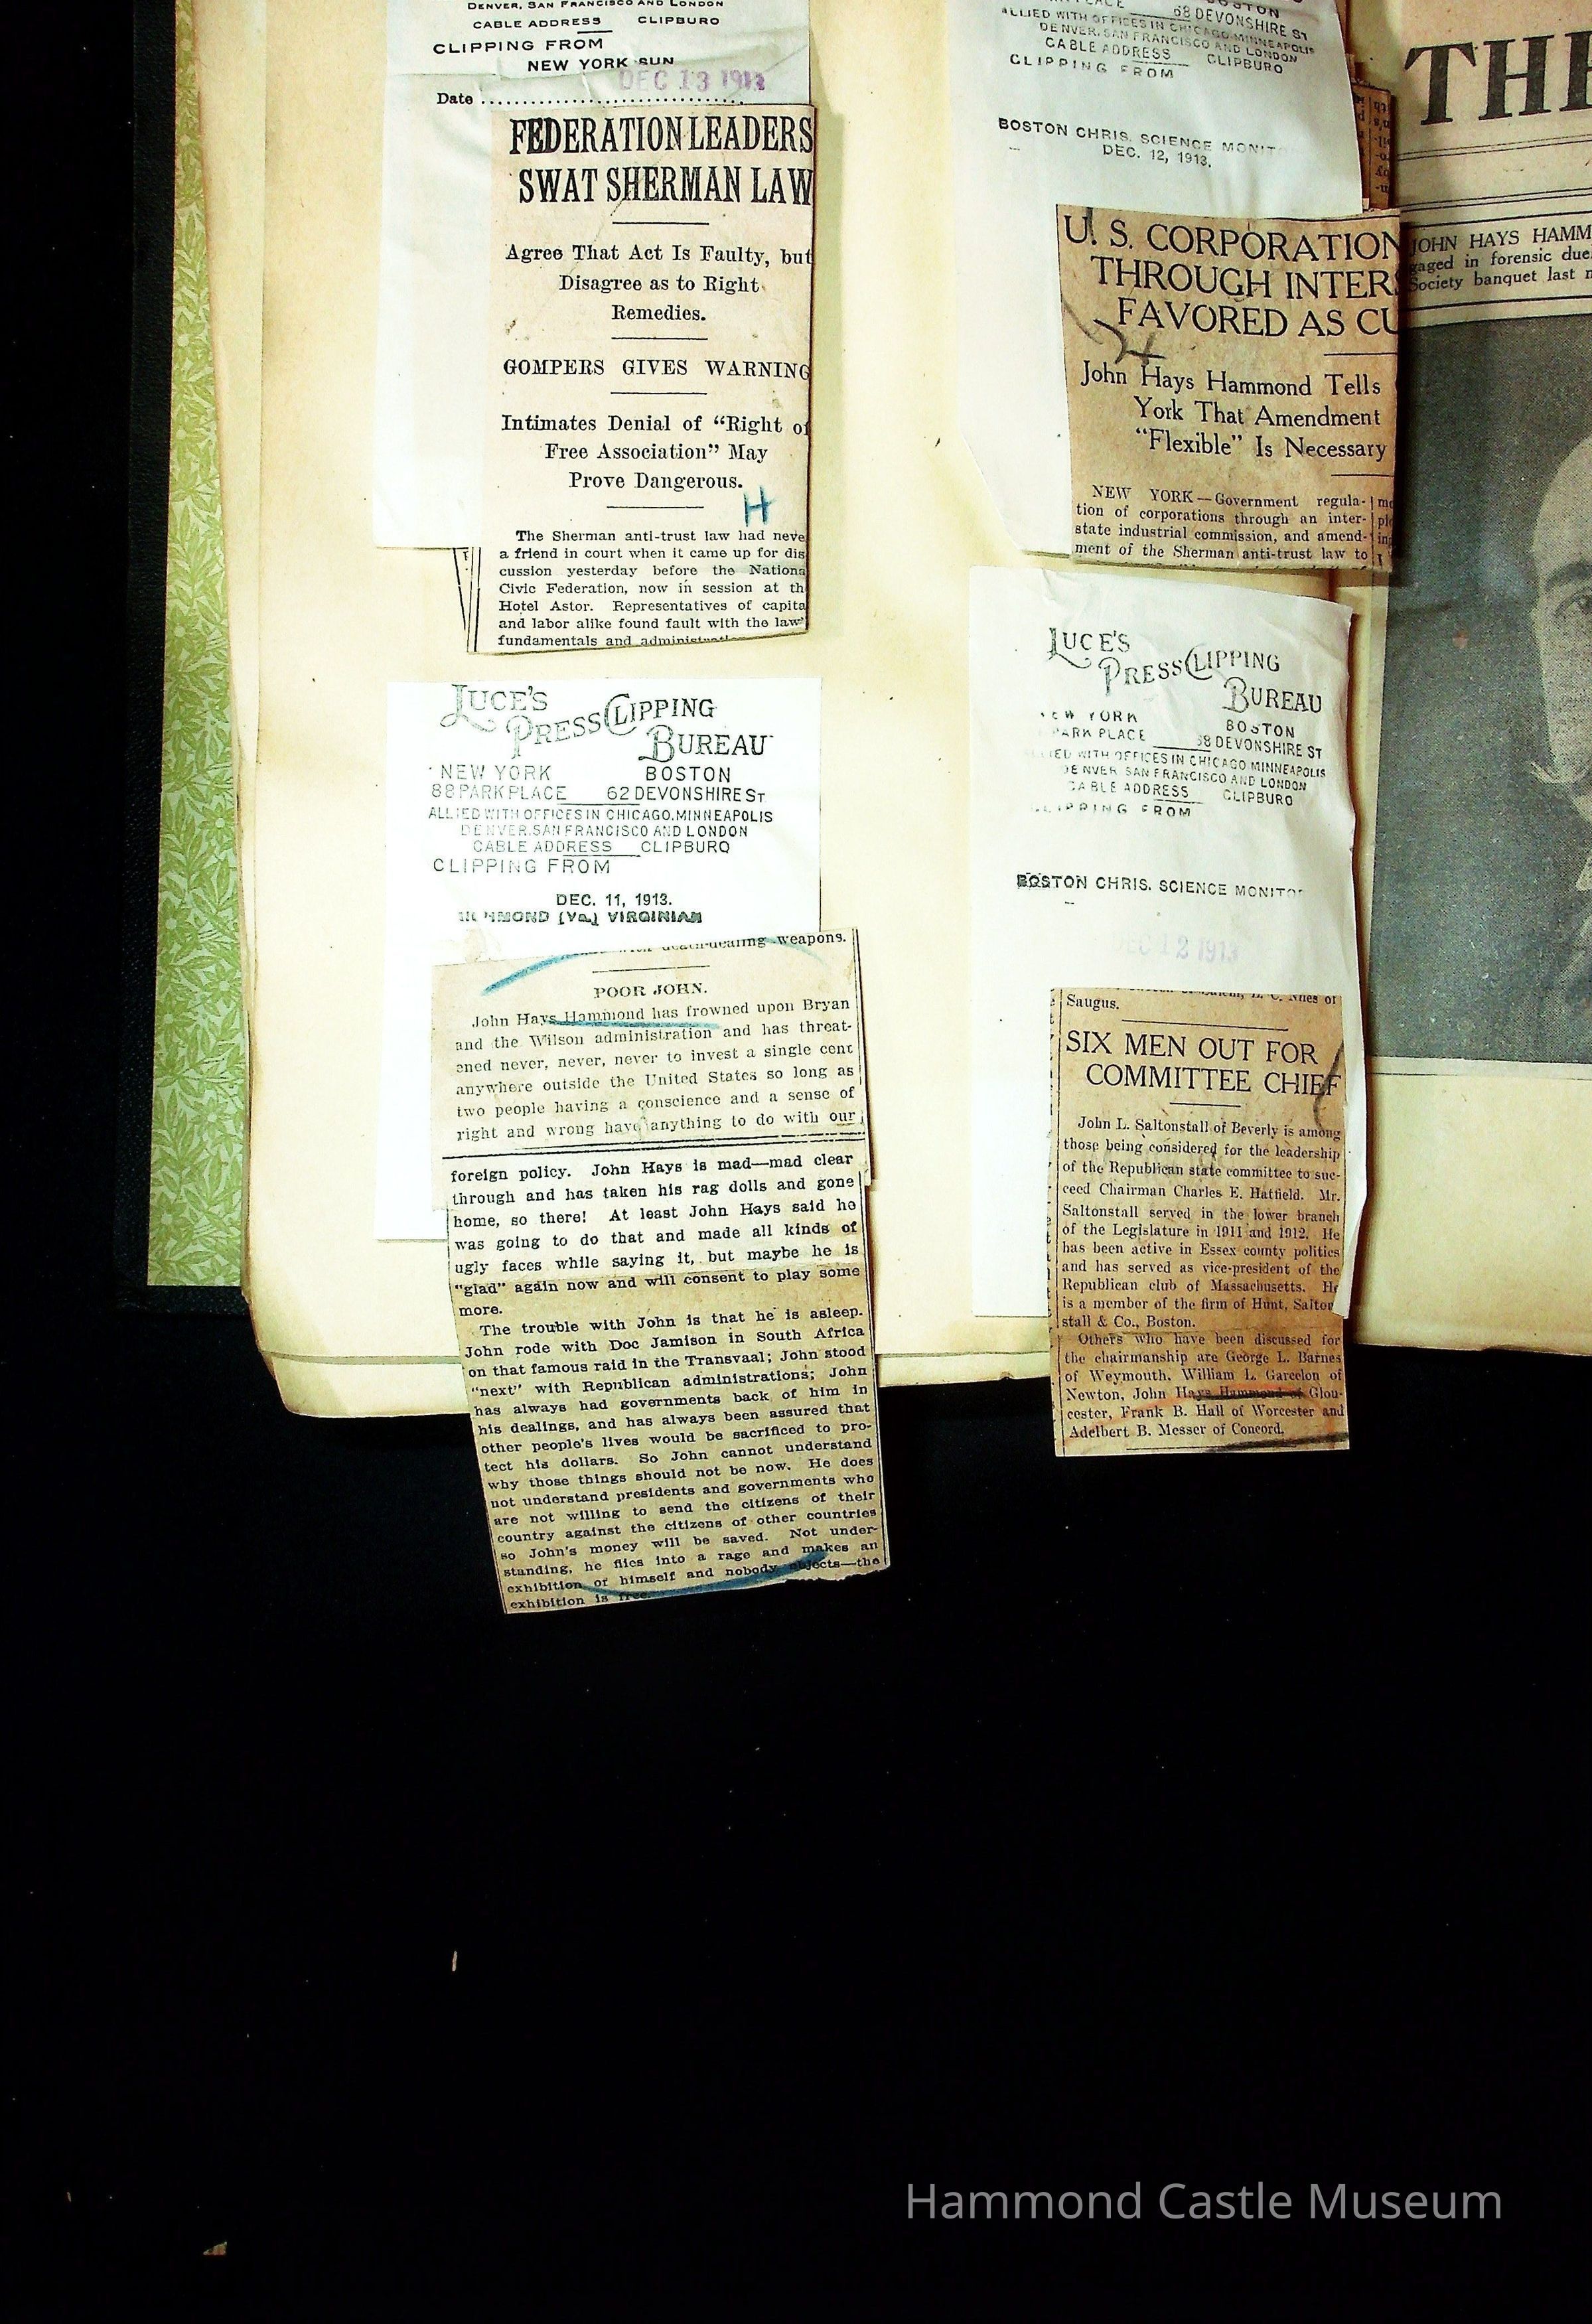 DENVER, SAN FRANCISCO AND LONDON
CABLE ADDRESS CLIPBURO
CLIPPING FROM
NEW YORK SUN
DEC 13 1913
Date
FEDERATION LEADERS
SWAT SHERMAN LAW
Agree That Act Is Faulty, but
Disagree as to Right
Remedies.
GOMPERS GIVES WARNING
Intimates Denial of “Right of
Free Association” May
Prove Dangerous.
H
The Sherman anti-trust law had neve
a friend in court when it came up for dis
cussion yesterday before the Nationa
Civic Federation, now in session at th
Hotel Astor. Representatives of capita
and labor alike found fault with the law'
fundamentals and
LUCE'S
PRESS CLIPPING
BUREAU
NEW YORK BOSTON
88 PARK PLACE 62 DEVONSHIRE ST
ALLIED WITH OFFICES IN CHICAGO, MINNEAPOLIS
DENVER, SAN FRANCISCO AND LONDON
CABLE ADDRESS CLIPBURO
CLIPPING FROM
DEC. 11, 1913.
RICHMOND (Va.) VIRGINIAN
death-dealing weapons.
POOR JOHN.
John Hays Hammond has frowned upon Bryan
and the Wilson administration and has threat-
ened never, never, never to invest a single cent
anywhere outside the United States so long as
two people having a conscience and a sense of
right and wrong have anything to do with our
foreign policy. John Hays is mad—mad clear
through and has taken his rag dolls and gone
home, so there! At least John Hays said he
was going to do that and made all kinds of
ugly faces while saying it, but maybe he is
“glad” again now and will consent to play some
more.
The trouble with John is that he is asleep.
John rode with Doc Jamison in South Africa
on that famous raid in the Transvaal; John stood
“next” with Republican administrations; John
has always had governments back of him in
his dealings, and has always been assured that
other people's lives would be sacrificed to pro-
tect his dollars. So John cannot understand
why those things should not be now. He does
not understand presidents and governments who
are not willing to send the citizens of their
country against the citizens of other countries
so John's money will be saved. Not under-
standing, he flies into a rage and makes an
exhibition of himself and nobody objects—the
exhibition is free.
BOSTON
68 DEVONSHIRE ST
ALLIED WITH OFFICES IN CHICAGO, MINNEAPOLIS
DENVER, SAN FRANCISCO AND LONDON
CABLE ADDRESS CLIPBURO
CLIPPING FROM
BOSTON CHRIS. SCIENCE MONIT
DEC. 12, 1913.
U. S. CORPORATION
THROUGH INTERS
FAVORED AS CU
John Hays Hammond Tells
York That Amendment
“Flexible” Is Necessary
NEW YORK—Government regula-
tion of corporations through an inter-
state industrial commission, and amend-
ment of the Sherman anti-trust law to
LUCE'S
PRESS CLIPPING
BUREAU
NEW YORK BOSTON
PARK PLACE 68 DEVONSHIRE ST
ALLIED WITH OFFICES IN CHICAGO MINNEAPOLIS
DENVER SAN FRANCISCO AND LONDON
CABLE ADDRESS CLIPBURO
CLIPPING FROM
BOSTON CHRIS. SCIENCE MONITOR
DEC 12 1913
Saugus.
SIX MEN OUT FOR
COMMITTEE CHIEF
John L. Saltonstall of Beverly is among
those being considered for the leadership
of the Republican state committee to suc-
ceed Chairman Charles E. Hatfield. Mr.
Saltonstall served in the lower branch
of the Legislature in 1911 and 1912. He
has been active in Essex county politics
and has served as vice-president of the
Republican club of Massachusetts. He
is a member of the firm of Hunt, Salton
stall & Co., Boston.
Others who have been discussed for
the chairmanship are George L. Barnes
of Weymouth, William L. Garcelon of
Newton, John Hays Hammond of Glou-
cester, Frank B. Hall of Worcester and
Adelbert B. Messer of Concord.
THE
JOHN HAYS HAMM
gaged in forensic due
Society banquet last n
Hammond Castle Museum